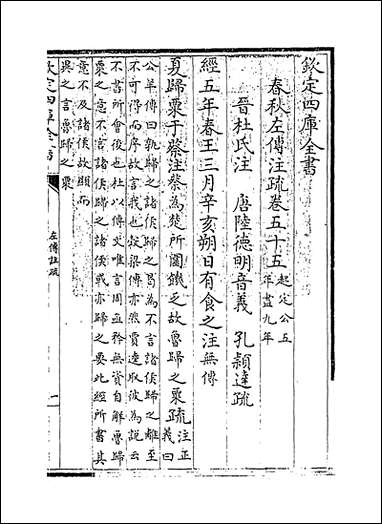 欽定四庫全書
春秋左傳注疏卷五十五起定公五年盡九年
晉杜氏注　唐陸德明音義　孔穎達疏
經五年春王三月辛亥朔日有食之注無傳
夏歸粟于蔡注蔡為楚所圍饑乏故魯歸之粟疏注正義曰
公羊傳曰孰歸之諸侯歸之曷為不言諸侯歸之離至
不可得而序故言我也穀梁傳亦然賈逵取彼為說云
不書所會後也杜以傳文唯言周亟矜無資自解魯歸
粟之意不言諸侯歸之諸侯或亦歸之要此經所書其
意不及諸侯故顯而
異之言魯歸之粟
欽定四庫全書
左傳注疏
一